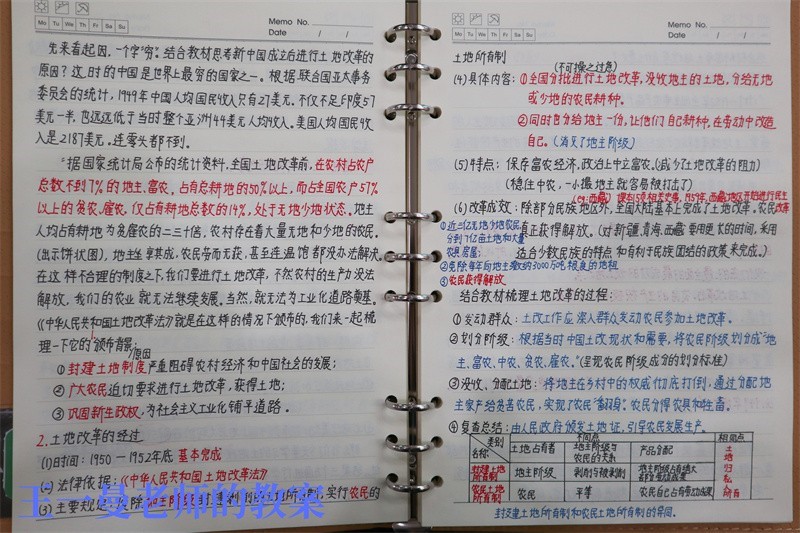 Memo No.
Mo Tu We Th Fr Sa Su
Date / /
先来看起因，一个字"穷"。结合教材思考新中国成立后进行土地改革的
原因？这时的中国是世界上最穷的国家之一。根据联合国亚太事务
委员会的统计，1949年中国人均国民收入只有27美元。不仅不足印度57
美元一半，也远远低于当时整个亚洲44美元人均收入。美国人均国民收
入是2187美元。连零头都不到。
"据国家统计局公布的统计资料，全国土地改革前，在农村占农户
总数不到7%的地主、富农，占有总耕地的50%以上，而占全国农户57%
以上的贫农、雇农，仅占有耕地总数的14%，处于无地少地状态。地主
人均占有耕地为贫雇农的二三十倍，农村存在着大量无地和少地的农民。
(出示饼状图)，地主坐享其成，农民劳而无获，甚至连温饱都没办法解决。
在这样不合理的制度之下，我们要进行土地改革，不然农村的生产力没法
解放，我们的农业就无法继续发展。当然，就无法为工业化道路奠基。
《中华人民共和国土地改革法》就是在这样的情况下颁布的，我们来一起梳
理一下它的颁布背景：
原因
①封建土地制度严重阻碍农村经济和中国社会的发展；
②广大农民迫切要求进行土地改革，获得土地；
③巩固新生政权，为社会主义工业化铺平道路。
2.土地改革的经过
(1)时间：1950—1952年底 基本完成
(2)法律依据：《中华人民共和国土地改革法》
(3)主要规定：废除地主阶级封建剥削的土地所有制，实行农民的
王一蔓老师的教案
Memo No.
Mo Tu We Th Fr Sa Su
Date / /
土地所有制
(不可操之过急)
(4)具体内容：①全国分批进行土地改革，没收地主的土地，分给无地
或少地的农民耕种。
②同时也分给地主一份，让他们自己耕种，在劳动中改造
自己。(消灭了地主阶级)
(5)特点：(保存富农经济，政治上中立富农。)(减少了土地改革的阻力)
(稳住中农，一小撮地主就容易被打击了)
(6)改革成效：除部分民族地区外，全国大陆基本上完成了土地改革。农民
真正获得解放。(对新疆、青海、西藏要用更长的时间，采用
适合少数民族的特点和有利于民族团结的政策来完成。)
①近三亿无地少地农民
分到7亿亩土地和大量
农具、房屋；
②免除每年向地主缴纳3000万吨粮食的地租
③农民获得解放
结合教材梳理土地改革的过程：
①发动群众：土改工作应深入群众发动农民参加土地改革。
②划分阶级：根据当时中国土改现状和需要，将农民阶级划分成"地
主、富农、中农、贫农、雇农。"(呈现农民阶级成分的划分标准)
③没收、分配土地：将地主在乡村中的权威彻底打倒，通过分配地
主家产给贫苦农民，实现了农民"翻身"。农民分得农具和牲畜。
④复查总结：由人民政府颁发土地证，引导农民发展生产。
类别 不同点 相同点
名称 土地占有者 地主阶级与农民的关系 产品分配 土地归私所有
封建土地所有制 地主阶级 剥削与被剥削 地主阶级占有绝大部分劳动成果
农民土地所有制 农民 平等 农民自己占有劳动成果
封建土地所有制和农民土地所有制的异同。